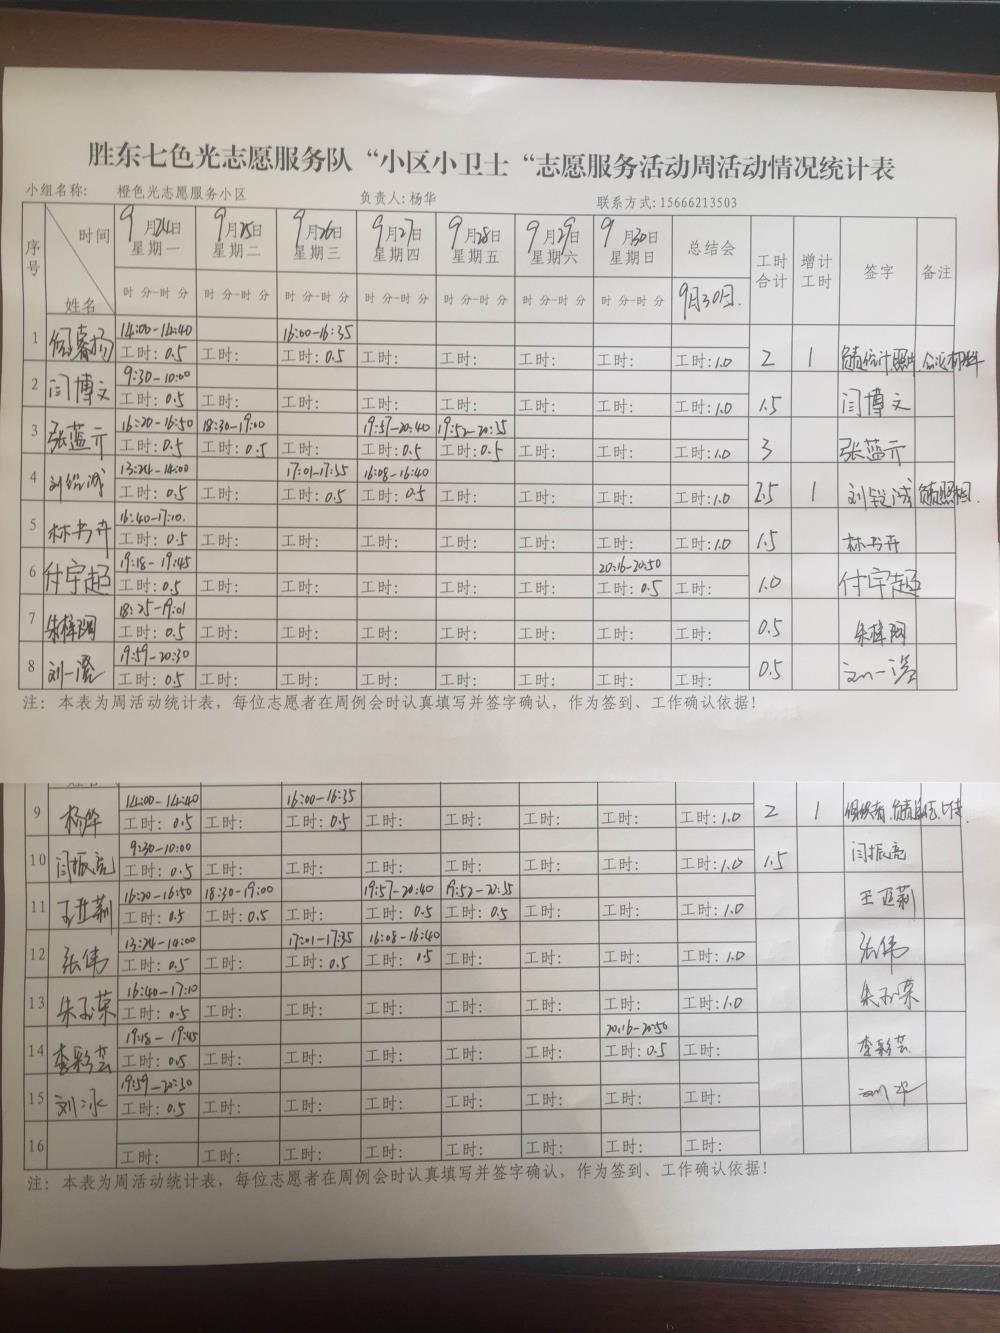 胜东七色光志愿服务队“小区小卫士“志愿服务活动周活动情况统计表
小组名称: 橙色光志愿服务小区 负责人: 杨华 联系方式: 15666213503
序号 时间 姓名 9月24日 星期一 9月25日 星期二 9月26日 星期三 9月27日 星期四 9月28日 星期五 9月29日 星期六 9月30日 星期日 总结会 工时合计 增计工时 签字 备注
时 分-时 分 时 分-时 分 时 分-时 分 时 分-时 分 时 分-时 分 时 分-时 分 时 分-时 分 9月30日.
1 14:00-14:40 16:00-16:35
工时: 0.5 工时: 工时: 0.5 工时: 工时: 工时: 工时: 工时: 1.0 2 1
2 闫博文 9:30-10:00
工时: 0.5 工时: 工时: 工时: 工时: 工时: 工时: 工时: 1.0 1.5 闫博文
3 张蓝亓 16:20-16:50 18:30-19:00 19:57-20:40 19:52-20:35
工时: 0.5 工时: 0.5 工时: 工时: 0.5 工时: 0.5 工时: 工时: 工时: 1.0 3 张蓝亓
4 13:24-14:00 17:01-17:35 16:08-16:40
工时: 0.5 工时: 工时: 0.5 工时: 0.5 工时: 工时: 工时: 工时: 1.0 2.5 1 负责照相.
5 林书卉 16:40-17:10.
工时: 0.5 工时: 工时: 工时: 工时: 工时: 工时: 工时: 1.0 1.5 林书卉
6 付宇超 19:18-19:45 20:16-20:50
工时: 0.5 工时: 工时: 工时: 工时: 工时: 工时: 0.5 工时: 1.0 付宇超
7 18:25-19:01
工时: 0.5 工时: 工时: 工时: 工时: 工时: 工时: 工时: 0.5
8 刘一澄 19:59-20:30
工时: 0.5 工时: 工时: 工时: 工时: 工时: 工时: 工时: 0.5 刘一澄
注: 本表为周活动统计表, 每位志愿者在周例会时认真填写并签字确认, 作为签到、工作确认依据!
9 杨华 14:00-14:40 16:00-16:35
工时: 0.5 工时: 工时: 0.5 工时: 工时: 工时: 工时: 工时: 1.0 2 1
10 闫振亮 9:30-10:00
工时: 0.5 工时: 工时: 工时: 工时: 工时: 工时: 工时: 1.0 1.5 闫振亮
11 王亚莉 16:20-16:50 18:30-19:00 19:57-20:40 19:52-20:35
工时: 0.5 工时: 0.5 工时: 工时: 0.5 工时: 0.5 工时: 工时: 工时: 1.0 王亚莉
12 张伟 13:24-14:00 17:01-17:35 16:08-16:40
工时: 0.5 工时: 工时: 0.5 工时: 0.5 工时: 工时: 工时: 工时: 1.0 张伟
13 朱玉荣 16:40-17:10
工时: 0.5 工时: 工时: 工时: 工时: 工时: 工时: 工时: 1.0 朱玉荣
14 李彩芸 19:18-19:45 20:16-20:50
工时: 0.5 工时: 工时: 工时: 工时: 工时: 工时: 0.5 工时: 李彩芸
15 刘冰 19:59-20:30
工时: 0.5 工时: 工时: 工时: 工时: 工时: 工时: 工时:
16
工时: 工时: 工时: 工时: 工时: 工时: 工时: 工时:
注: 本表为周活动统计表, 每位志愿者在周例会时认真填写并签字确认, 作为签到、工作确认依据!